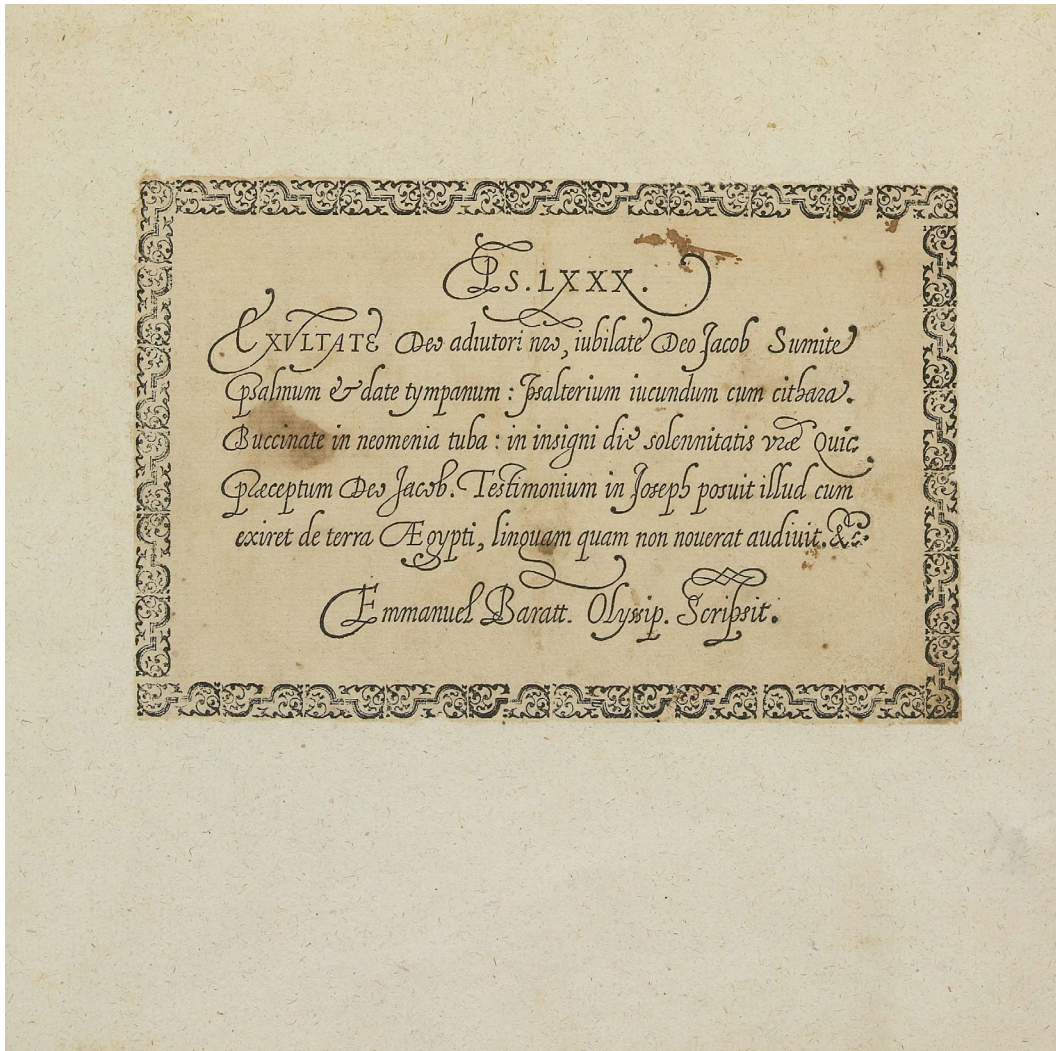 Ps. LXXX.
EXVLTATE Deo adiutori nro, iubilate Deo Jacob Sumite
psalmum & date tympanum : Psalterium iucundum cum cithara.
Buccinate in neomenia tuba : in insigni die solennitatis vræ Quic
præceptum Deo Jacob. Testimonium in Joseph posuit illud cum
exiret de terra Ægypti, linguam quam non nouerat audiuit. &c
Emmanuel Baratt. Olyssip. Scripsit.